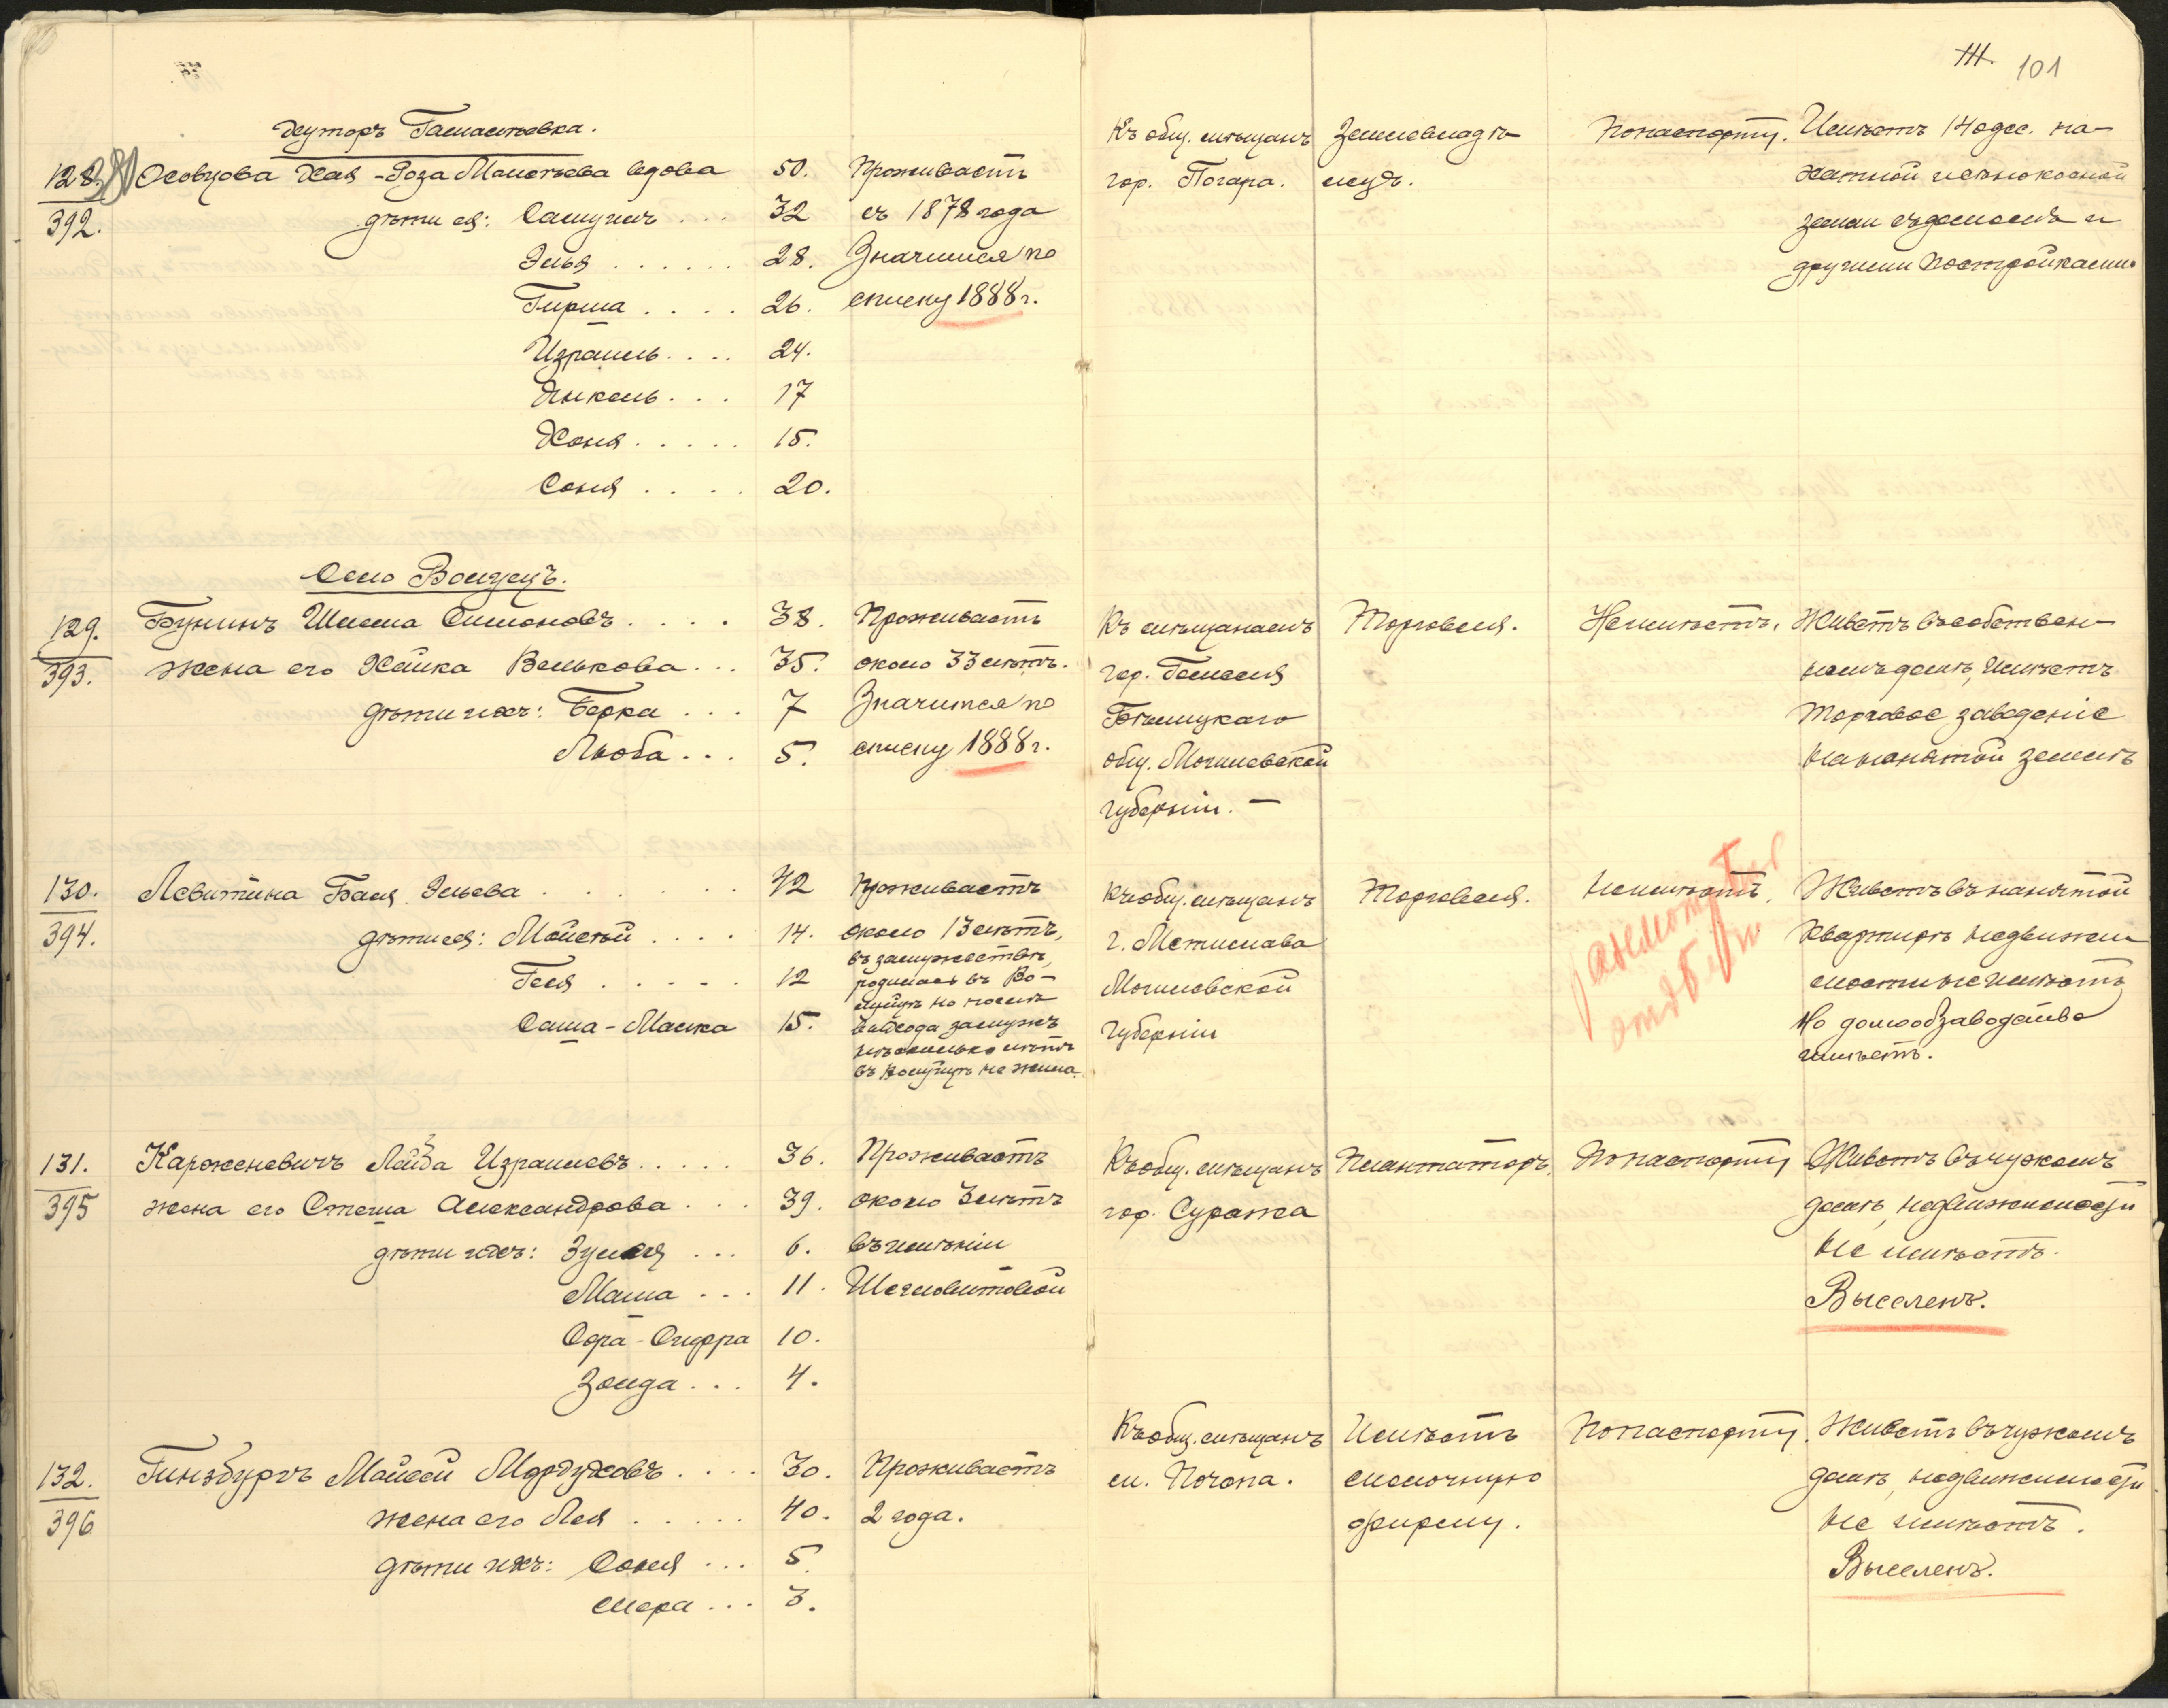 111. 101
Хуторъ
128. Осовцова Хая-Роза вдова 50. Проживаетъ Къ общ. мѣщанъ Землевладѣ- По паспорту. Имѣетъ 140 дес. па-
392. дѣти ея: Самуилъ . . . 32 съ 1878 года гор. Погара. лецъ. хатной и сѣнокосной
Элья . . . . . . 28. Значится по земли съ домомъ и
Гирша . . . . 26. списку 1888 г. другими постройками.
Израиль . . . . 24.
Янкель . . . 17
Хоня . . . . . 15.
Соня . . . . 20.
Село
129. Бунинъ Шлема Симоновъ . . . . 38. Проживаетъ Къ мѣщанамъ Торговля. Не имѣетъ. Живетъ въ собствен-
393. жена его Хайка Велькова . . . 35. около 33 лѣтъ. гор. Гомеля номъ домѣ, имѣетъ
дѣти ихъ: Берка . . . 7 Значится по Бѣлицкаго торговое заведеніе
Люба . . . 5. списку 1888 г. общ. Могилевской на нанятой землѣ
губерніи. —
130. Левитина Бася Эльева . . . . . . 42 Проживаетъ Къ общ. мѣщанъ Торговля. Не имѣетъ. Живетъ въ нанятой
394. дѣти ея: Мойсей . . . . 14. около 13 лѣтъ, г. Мстислава квартирѣ недвижи-
въ замужествѣ,
Геся . . . . . 12 родилась въ Во- Могилевской мости не имѣетъ
но послѣ
Саша-Маска 15. выхода замужъ губерніи Но домообзаводство
нѣсколько лѣтъ имѣетъ.
въ не жила.
131. Карженевичъ Лейба Израилевъ . . . . . 36. Проживаетъ Къ общ. мѣщанъ Плантаторъ. По паспорту Живетъ въ чужомъ
395 жена его Стеша Александрова . . . 39. около 3 лѣтъ гор. Суража домѣ, недвижимости
дѣти ихъ: . . . 6. въ имѣніи не имѣетъ.
Маша . . . 11. Щегловитовой Выселенъ.
Сора-Сифра 10.
Зелда . . . 4.
132. Гинзбургъ Мойсей Мордуховъ . . . . 30. Проживаетъ Къ общ. мѣщанъ Имѣетъ По паспорту. Живетъ въ чужомъ
396 жена его Лея . . . . . 40. 2 года. м. Почепа. молочную домѣ, недвижимости
дѣти ихъ: Соня . . . 5. ферму. не имѣетъ.
Мера . . . 3. Выселенъ.